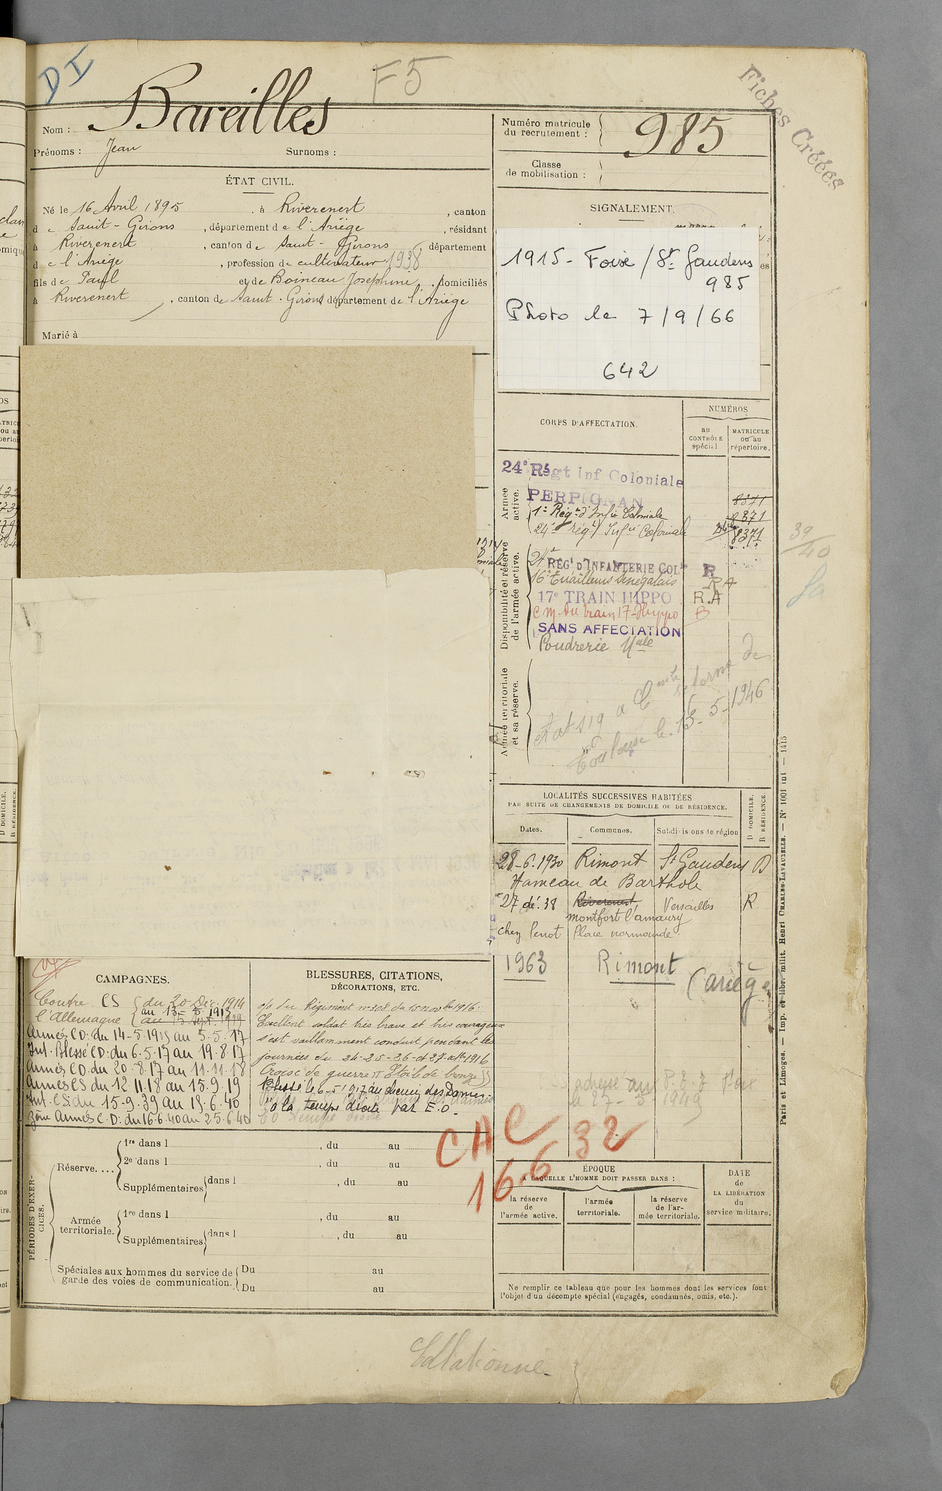 DI
F5
Fiches Créées
Nom : Bareilles
Prénoms : Jean Surnoms :
Numéro matricule du recrutement : 985
Classe de mobilisation :
ÉTAT CIVIL.
Né le 16 Avril 1895 , à Riverenert , canton
de Saint-Girons , département de l'Ariège , résidant
à Riverenert , canton de Saint-Girons , département
de l'Ariège , profession de cultivateur 1938
fils de Paul et de Boineau Josephine , domiciliés
à Riverenert , canton de Saint-Girons département de l'Ariège
Marié à
SIGNALEMENT.
1915 - Foix / St Gaudens
985
Photo le 7/9/66
642
CORPS D'AFFECTATION.
NUMÉROS
au CONTRÔLE spécial
MATRICULE ou au répertoire.
Armée active.
24e Régt Inf Coloniale
PERPIGNAN
1er Régt d'Infie Coloniale
24e Régt Infie Coloniale
8371
8371
8371
Disponibilité et réserve de l'armée active.
24e RÉGt D'INFANTERIE COLle R
16e Tirailleurs Sénégalais RA
17e TRAIN HIPPO R.A
C.M. du train 17 Hippo B
SANS AFFECTATION
Poudrerie Nale
39/40
Armée territoriale et sa réserve.
Toulouse le 13-5-1946
LOCALITÉS SUCCESSIVES HABITÉES
PAR SUITE DE CHANGEMENTS DE DOMICILE OU DE RÉSIDENCE.
Dates. Communes. Subdivisions de région D DOMICILE. R RÉSIDENCE.
28-6-1930 Rimont St Gaudens D
Hameau de Barthole
27 dé. 38 Riverenert Versailles R
montfort l'amaury
chez Perrot Place normande
1963 Rimont (ariège)
adresse au
le 27-3 1949
CAMPAGNES.
Contre CS du 20 Déc. 1914
l'Allemagne au 13-5-1915
au 15 Sept. 1919
Armées CD: du 14-5-1915 au 5-5-17
Int. Blessé CD: du 6-5-17 au 19-8-17
Armées CD du 20-8-17 au 11-11-18
Armées CS du 12-11-18 au 15-9-19
Int. CS: du 15-9-39 au 15-6-40
Zone Armées C-D: du 16-6-40 au 25-6-40
BLESSURES, CITATIONS,
DÉCORATIONS, ETC.
Excellent soldat très brave et très courageux
s'est vaillamment conduit pendant les
journées du 24-25-26-et 27-
Croix de guerre Étoile de bronze
Blessé le 6-5-1917 au chemin des Dames
"à la tempe droite par E.O."
CAC
16.6.32
PÉRIODES D'EXERCICES.
Réserve....
1re dans l , du au
2e dans l , du au
Supplémentaires dans l , du au
Armée territoriale.
1re dans l , du au
Supplémentaires dans l , du au
Spéciales aux hommes du service de garde des voies de communication.
Du au
Du au
ÉPOQUE
A LAQUELLE L'HOMME DOIT PASSER DANS :
la réserve de l'armée active.
l'armée territoriale.
la réserve de l'armée territoriale.
DATE de LA LIBÉRATION du service militaire.
Ne remplir ce tableau que pour les hommes dont les services font
l'objet d'un décompte spécial (engagés, condamnés, omis, etc.).
Paris et Limoges. — Imp. et libr. milit. Henri CHARLES-LAVAUZELLE. — N° 1001 int — 1415
Collationné.